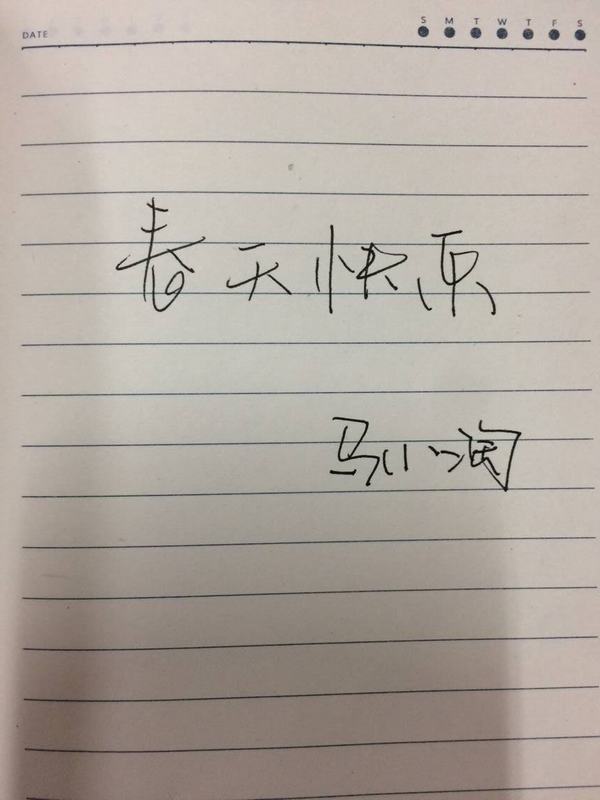 DATE S M T W T F S
春天快乐
马小淘